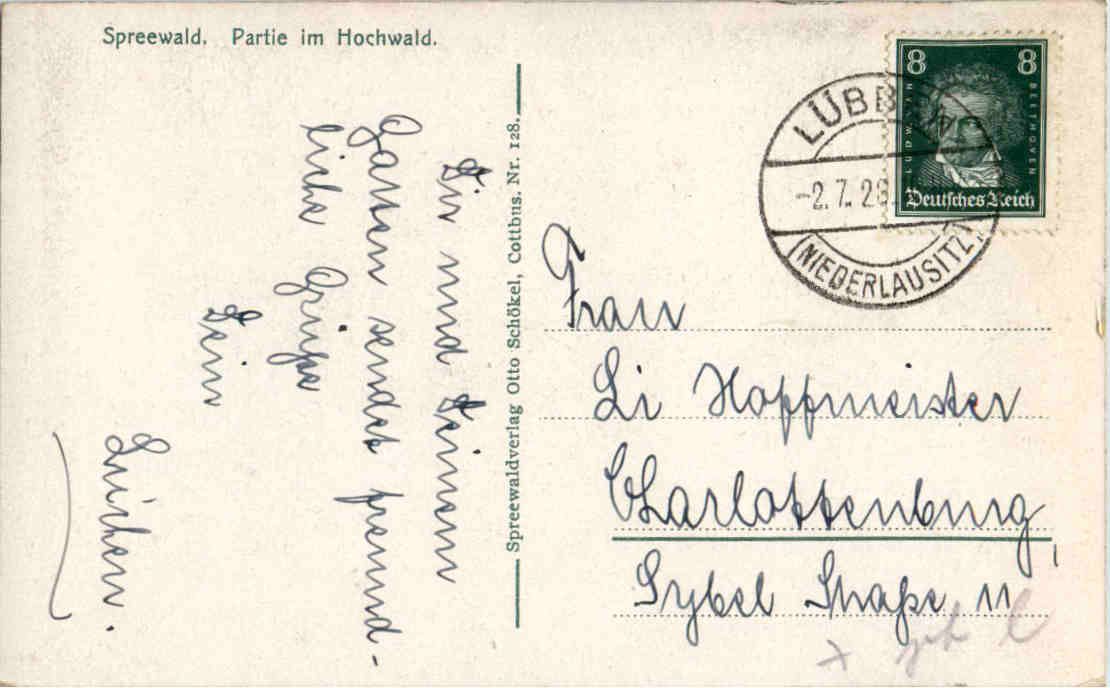 Spreewald. Partie im Hochwald.
Dir und Deinem
Gatten sendet freund-
liche Grüße
Dein
Spreewaldverlag Otto Schökel, Cottbus. Nr. 128.
8 8
LUDWIG VAN BEETHOVEN
Deutsches Reich
LÜBBEN
-2.7.28.
(NIEDERLAUSITZ)
Frau
Li Hoffmeister
Charlottenburg
Sybel Straße 11